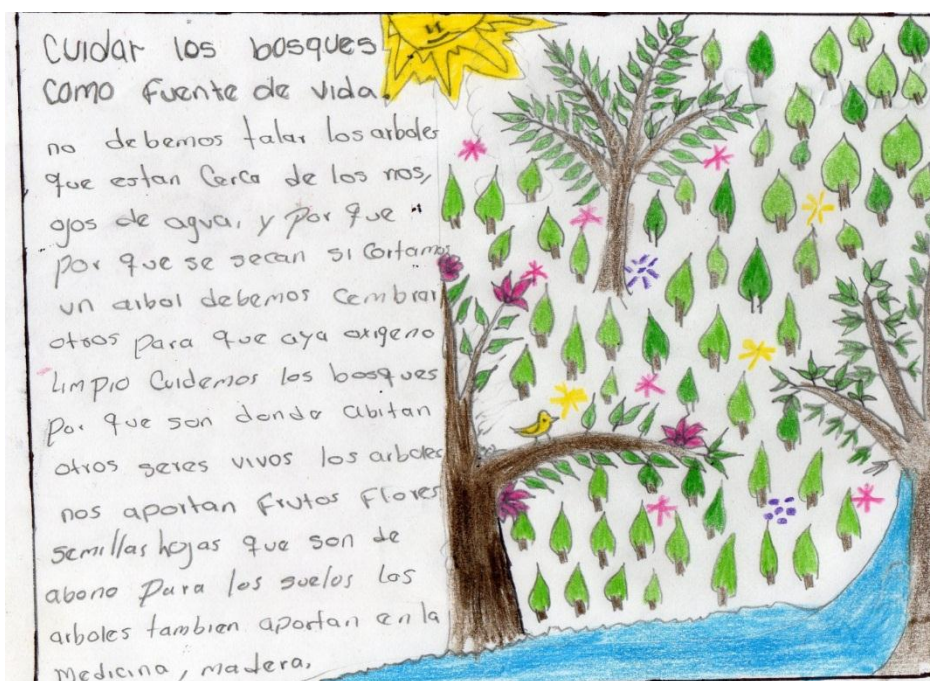 Cuidar los bosques
Como fuente de vida.
no debemos talar los arboles
que estan Cerca de los rios,
ojos de agua, y por que
por que se secan si Cortamos
un arbol debemos Cembrar
otros Para que aya oxigeno
Limpio Cuidemos los bosques
Por que son donde abitan
otros seres vivos los arboles
nos aportan Frutos Flores
semillas hojas que son de
abono Para los suelos los
arboles tambien aportan en la
Medicina, madera.